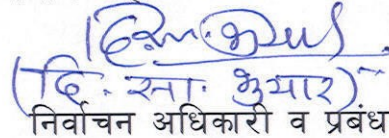 (दि. सा. भुयार)
निर्वाचन अधिकारी व प्रबंध